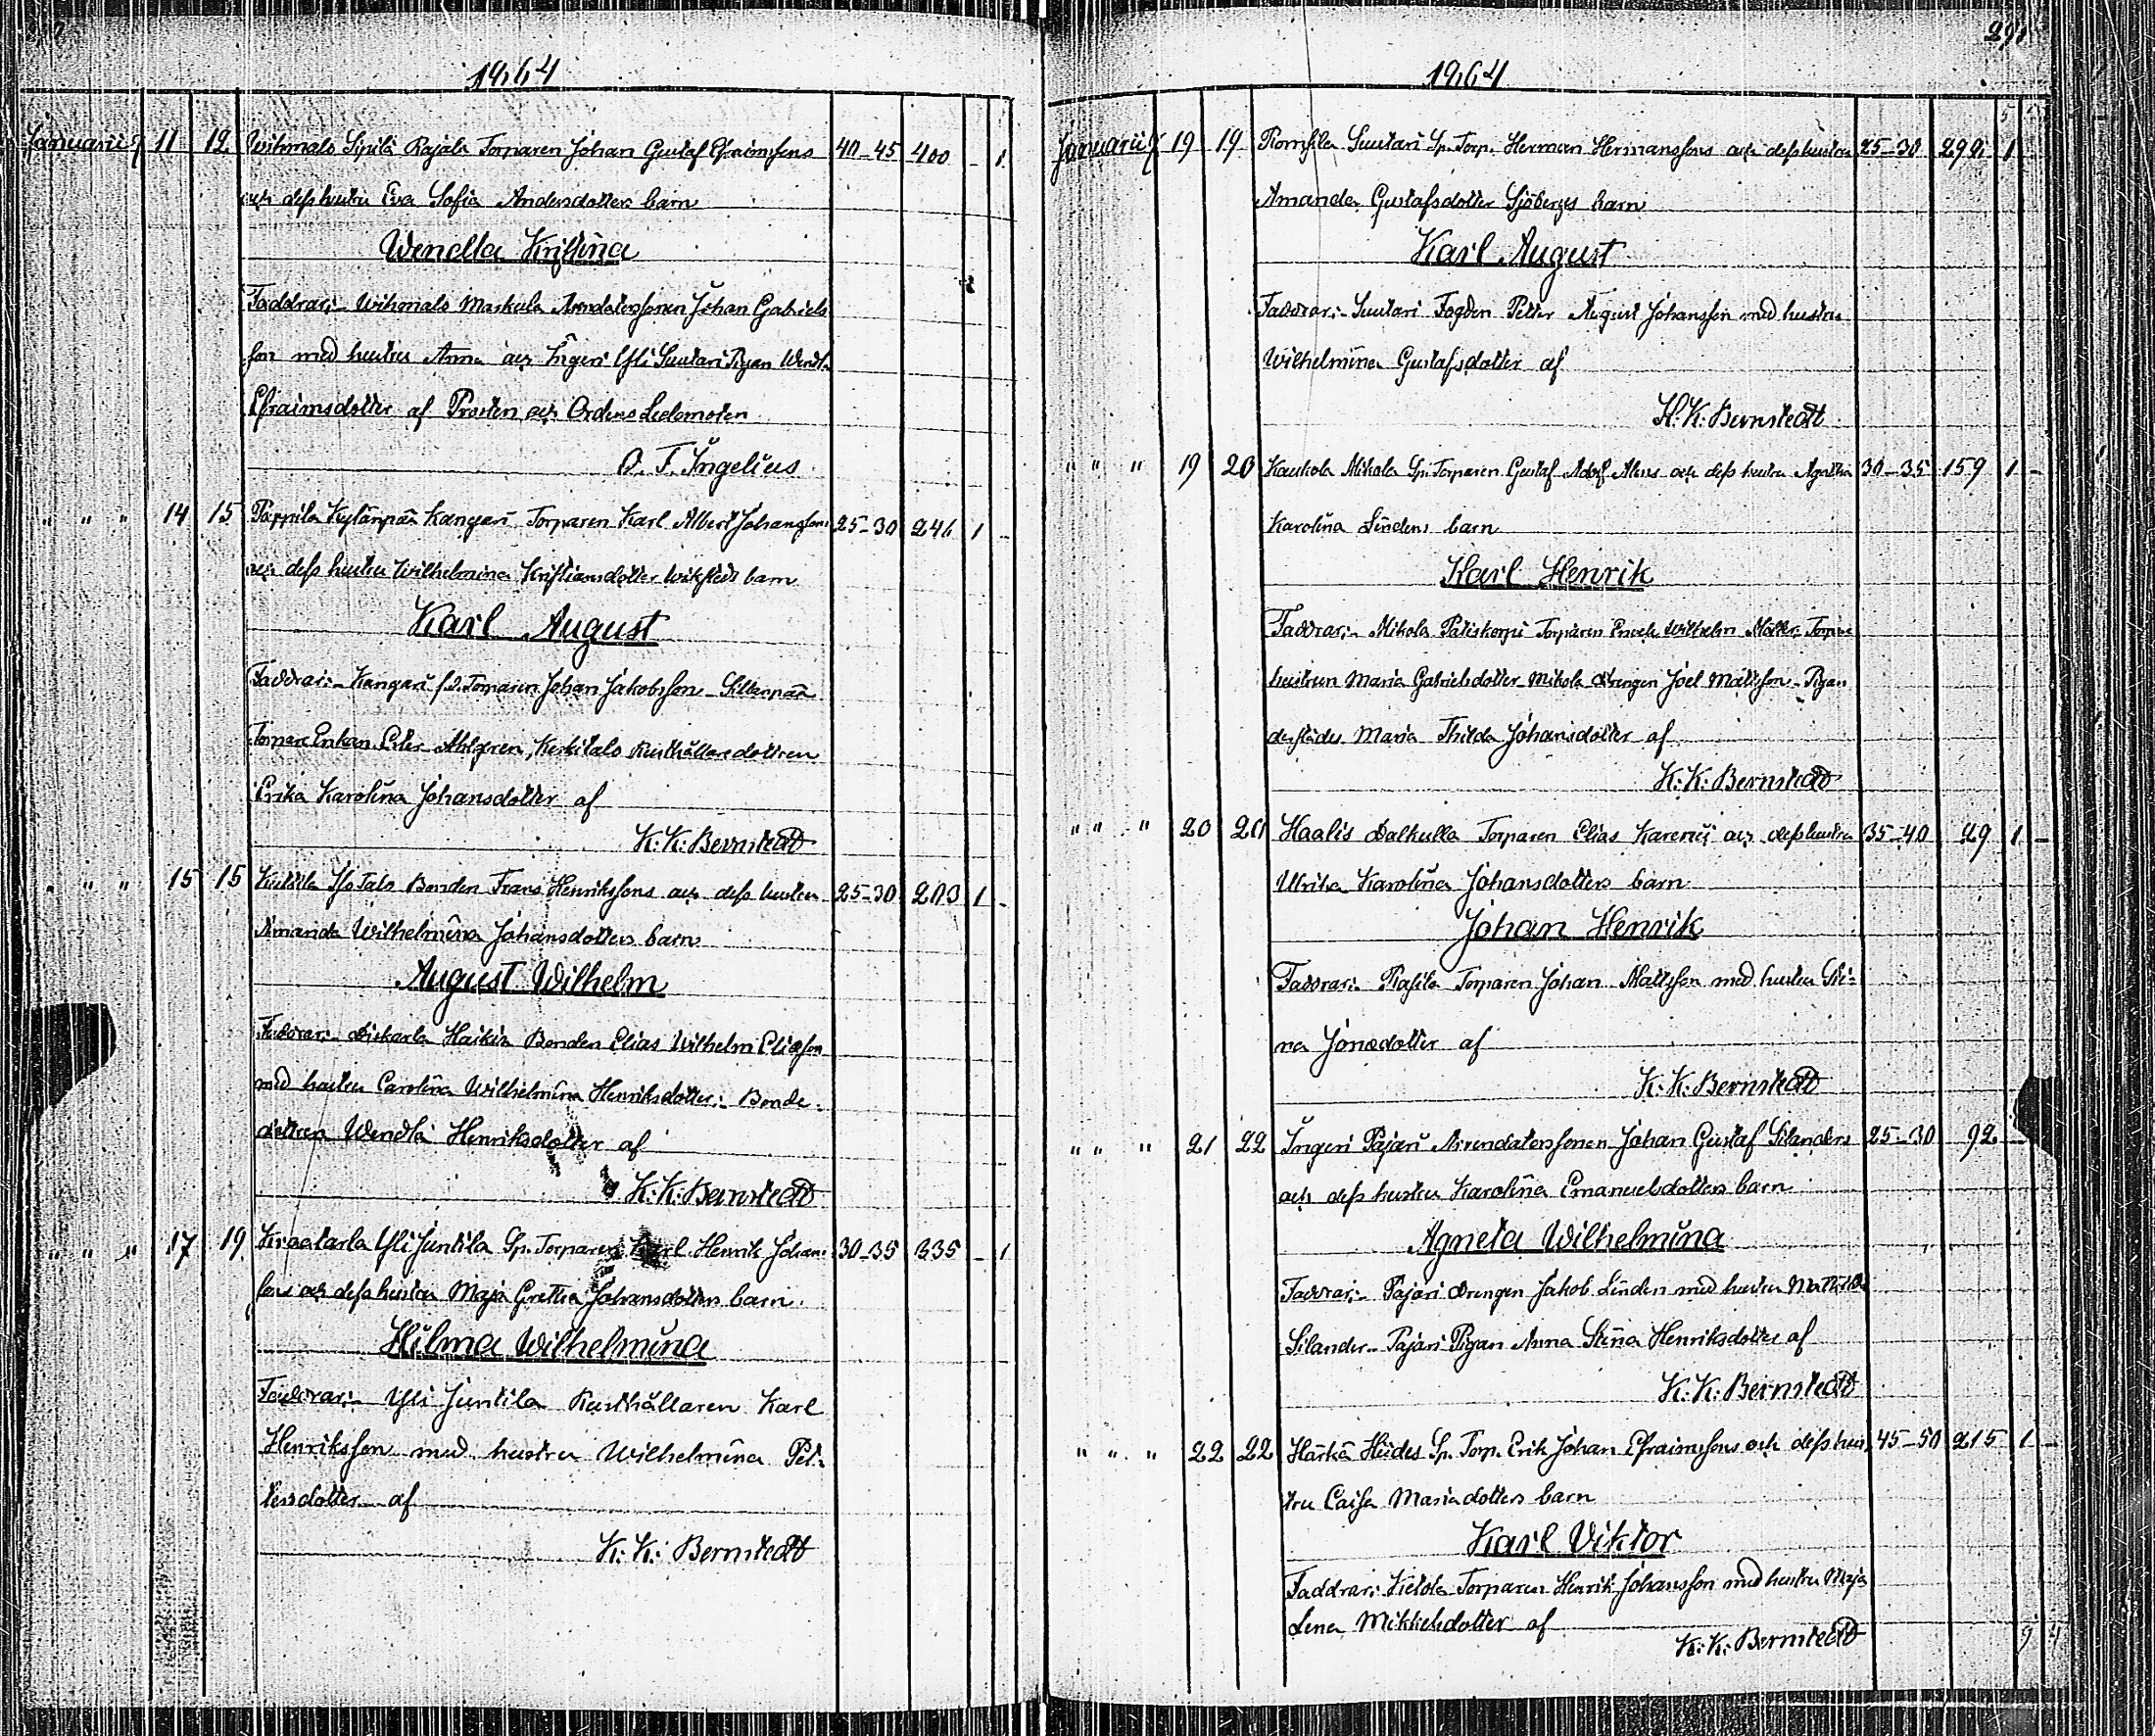 1864
Januarii 11 12 Wihmalo Sipilä Rajala Torparen Johan Gustaf Efraimssons 40-45 400 - 1
och dess hustru Eva Sofia Andersdotters barn
Wendla Kristina
Faddrar:- Wihmalo Markula Arrendatorssonen Johan Gabriels
son med hustru Anna och Ingeri Yli Suutari Pigan Wendla
Efraimsdotter af Prosten och Ordens Ledamoten
O. F. Ingelius
" " " 14 15 Pappila Kylänpää Kangari Torparen Karl Albert Johanssons 25-30 246 1 -
och dess hustru Wilhelmina Kristiansdotter Wikstedts barn
Karl August
Faddrar:- Kangari f.d. Torparen Johan Jakobsson
Torpare Enkan Ahlgren, Keskitalo Rusthållaredottren
Erika Karolina Johansdotter af
K: K: Bernstedt
" " " 15 15 Iso Talo Bonden Frans Henrikssons och dess hustru 25-30 203 1 -
Amanda Wilhelmina Johansdotters barn
August Wilhelm
Faddrar:- Haikia Bonden Elias Wilhelm Eliasson
med hustru Carolina Wilhelmina Henriksdotter:- Bonde-
dottren Wendla Henriksdotter af
K: K: Bernstedt
" " " 17 19 Yli Juntila Sp. Torparen Karl Henrik Johans- 30-35 335 - 1
sons och dess hustru Maja Gretha Johansdotters barn.
Hilma Wilhelmina
Faddrar:- Yli Juntila Rusthållaren Karl
Henriksson med hustru Wilhelmina Pet-
tersdotter af
K: K: Bernstedt
291
1864
Januarii 19 19 Suutari Sp. Torp. Herman Hermanssons och dess hustru 25-30 292 1
Amanda Gustafsdotter Sjöbergs barn
Karl August
Faddrar:- Suutari Fogden Petter August Johansson med hustru
Wilhelmina Gustafsdotter af
K. K: Bernstedt
" " " 19 20 Kaukola Mikola Sp. Torparen Gustaf Adolf Alens och dess hustru Agatha 30-35 159 1 -
Karolina Lindens barn
Karl Henrik
Faddrar:- Mikola Torparen Enoch Wilhelm Torpare
hustrun Maria Gabrielsdotter Mikola Drengen Joel Mattsson - Pigan
derstädes Maria Thilda Johansdotter af
K: K: Bernstedt
" " " 20 20 Haalis Dalkulla Torparen Elias och dess hustru 35-40 49 1 -
Ulrika Karolina Johansdotters barn
Johan Henrik
Faddrar:- Torparen Johan Mattsson med hustru Sti-
na Jonasdotter af
K: K: Bernstedt
" " " 21 22 Ingeri Pajari Arrendatorssonen Johan Gustaf Silanders 25-30 92 -
och dess hustru Karolina Emanuelsdotters barn
Agneta Wilhelmina
Faddrar:- Pajari Drengen Jakob Linden med hustru Mathilda
Silander - Pajari Pigan Anna Stina Henriksdotter af
K: K: Bernstedt
" " " 22 22 Härkä Sp. Torp. Erik Johan Efraimssons och dess hus- 45-50 215 1 -
tru Caisa Mariadotters barn
Karl Viktor
Faddrar: Torparen Henrik Johansson med hustru Maja
Lena Mikkelsdotter af
K: K: Bernstedt
9 4